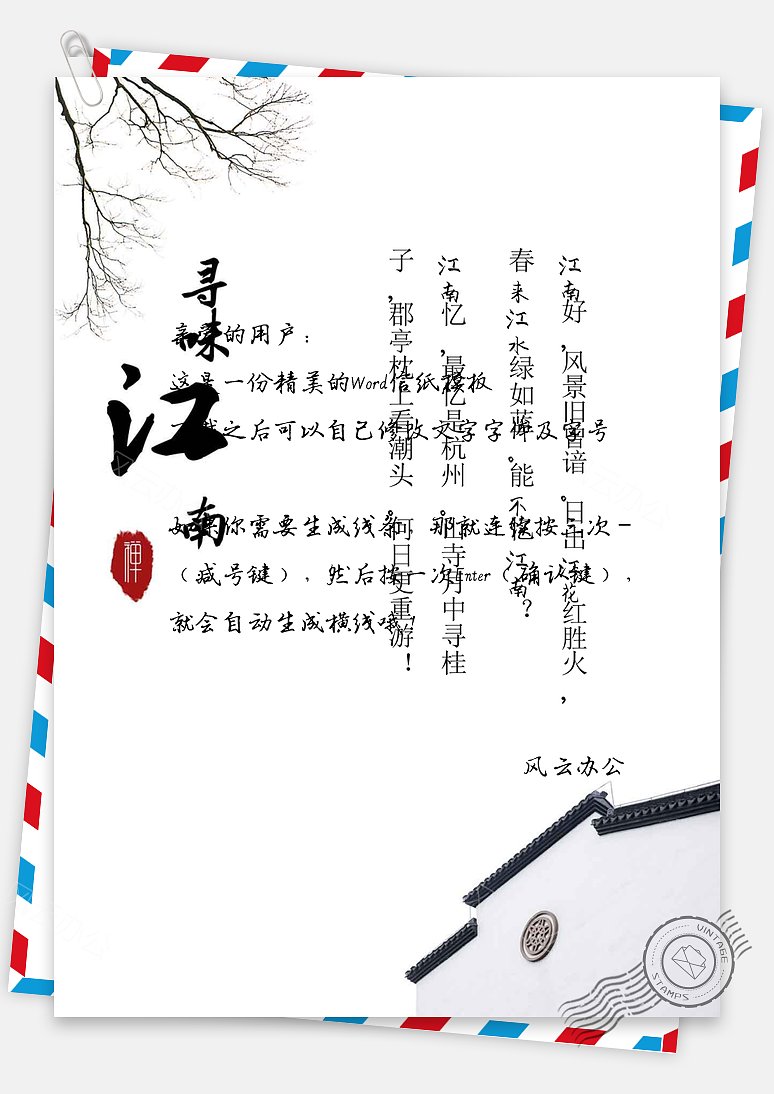 寻味
江
南
禅
江南好,风景旧曾谙。日出江花红胜火,
春来江水绿如蓝。能不忆江南?
江南忆,最忆是杭州。山寺月中寻桂
子,郡亭枕上看潮头。何日更重游!
亲爱的用户:
这是一份精美的Word信纸模板
下载之后可以自己修改文字字体及字号
如果你需要生成线条,那就连续按三次-
(减号键),然后按一次Enter(确认键),
就会自动生成横线哦!
风云办公
VINTAGE
STAMPS